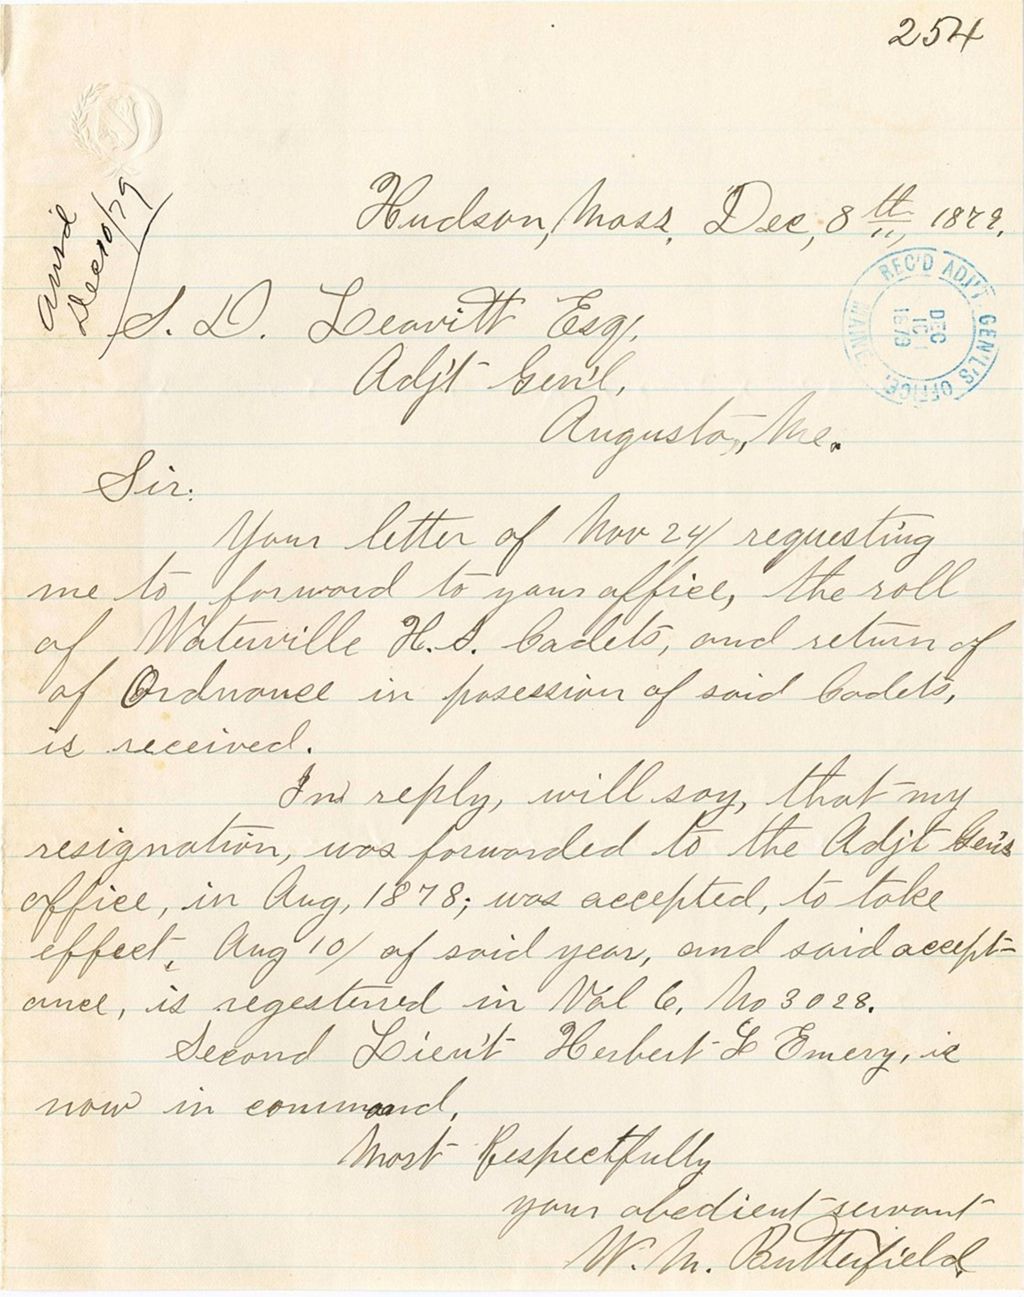 254
Hudson, Mass. Dec, 8th, 1879.
Ans'd
Dec 10/79
S. D. Leavitt Esq.
Adj't Gen'l,
Augusta, Me.
REC'D ADJ'T GEN'L'S OFFICE, MAINE
DEC
10
1879
Sir:
Your letter of Nov 24/ requesting
me to forward to your office, the roll
of Waterville H. S. Cadets, and return of
of Ordnance in posession of said Cadets,
is received.
In reply, will say, that my
resignation, was forwarded to the Adjt Gen's
office, in Aug, 1878; was accepted, to take
effect, Aug 10/ of said year, and said accept-
ance, is regesterred in Vol 6, No 3028.
Second Lieu't Herbert L Emery, is
now in command.
Most Respectfully
your obedient servant
W. M. Butterfield.